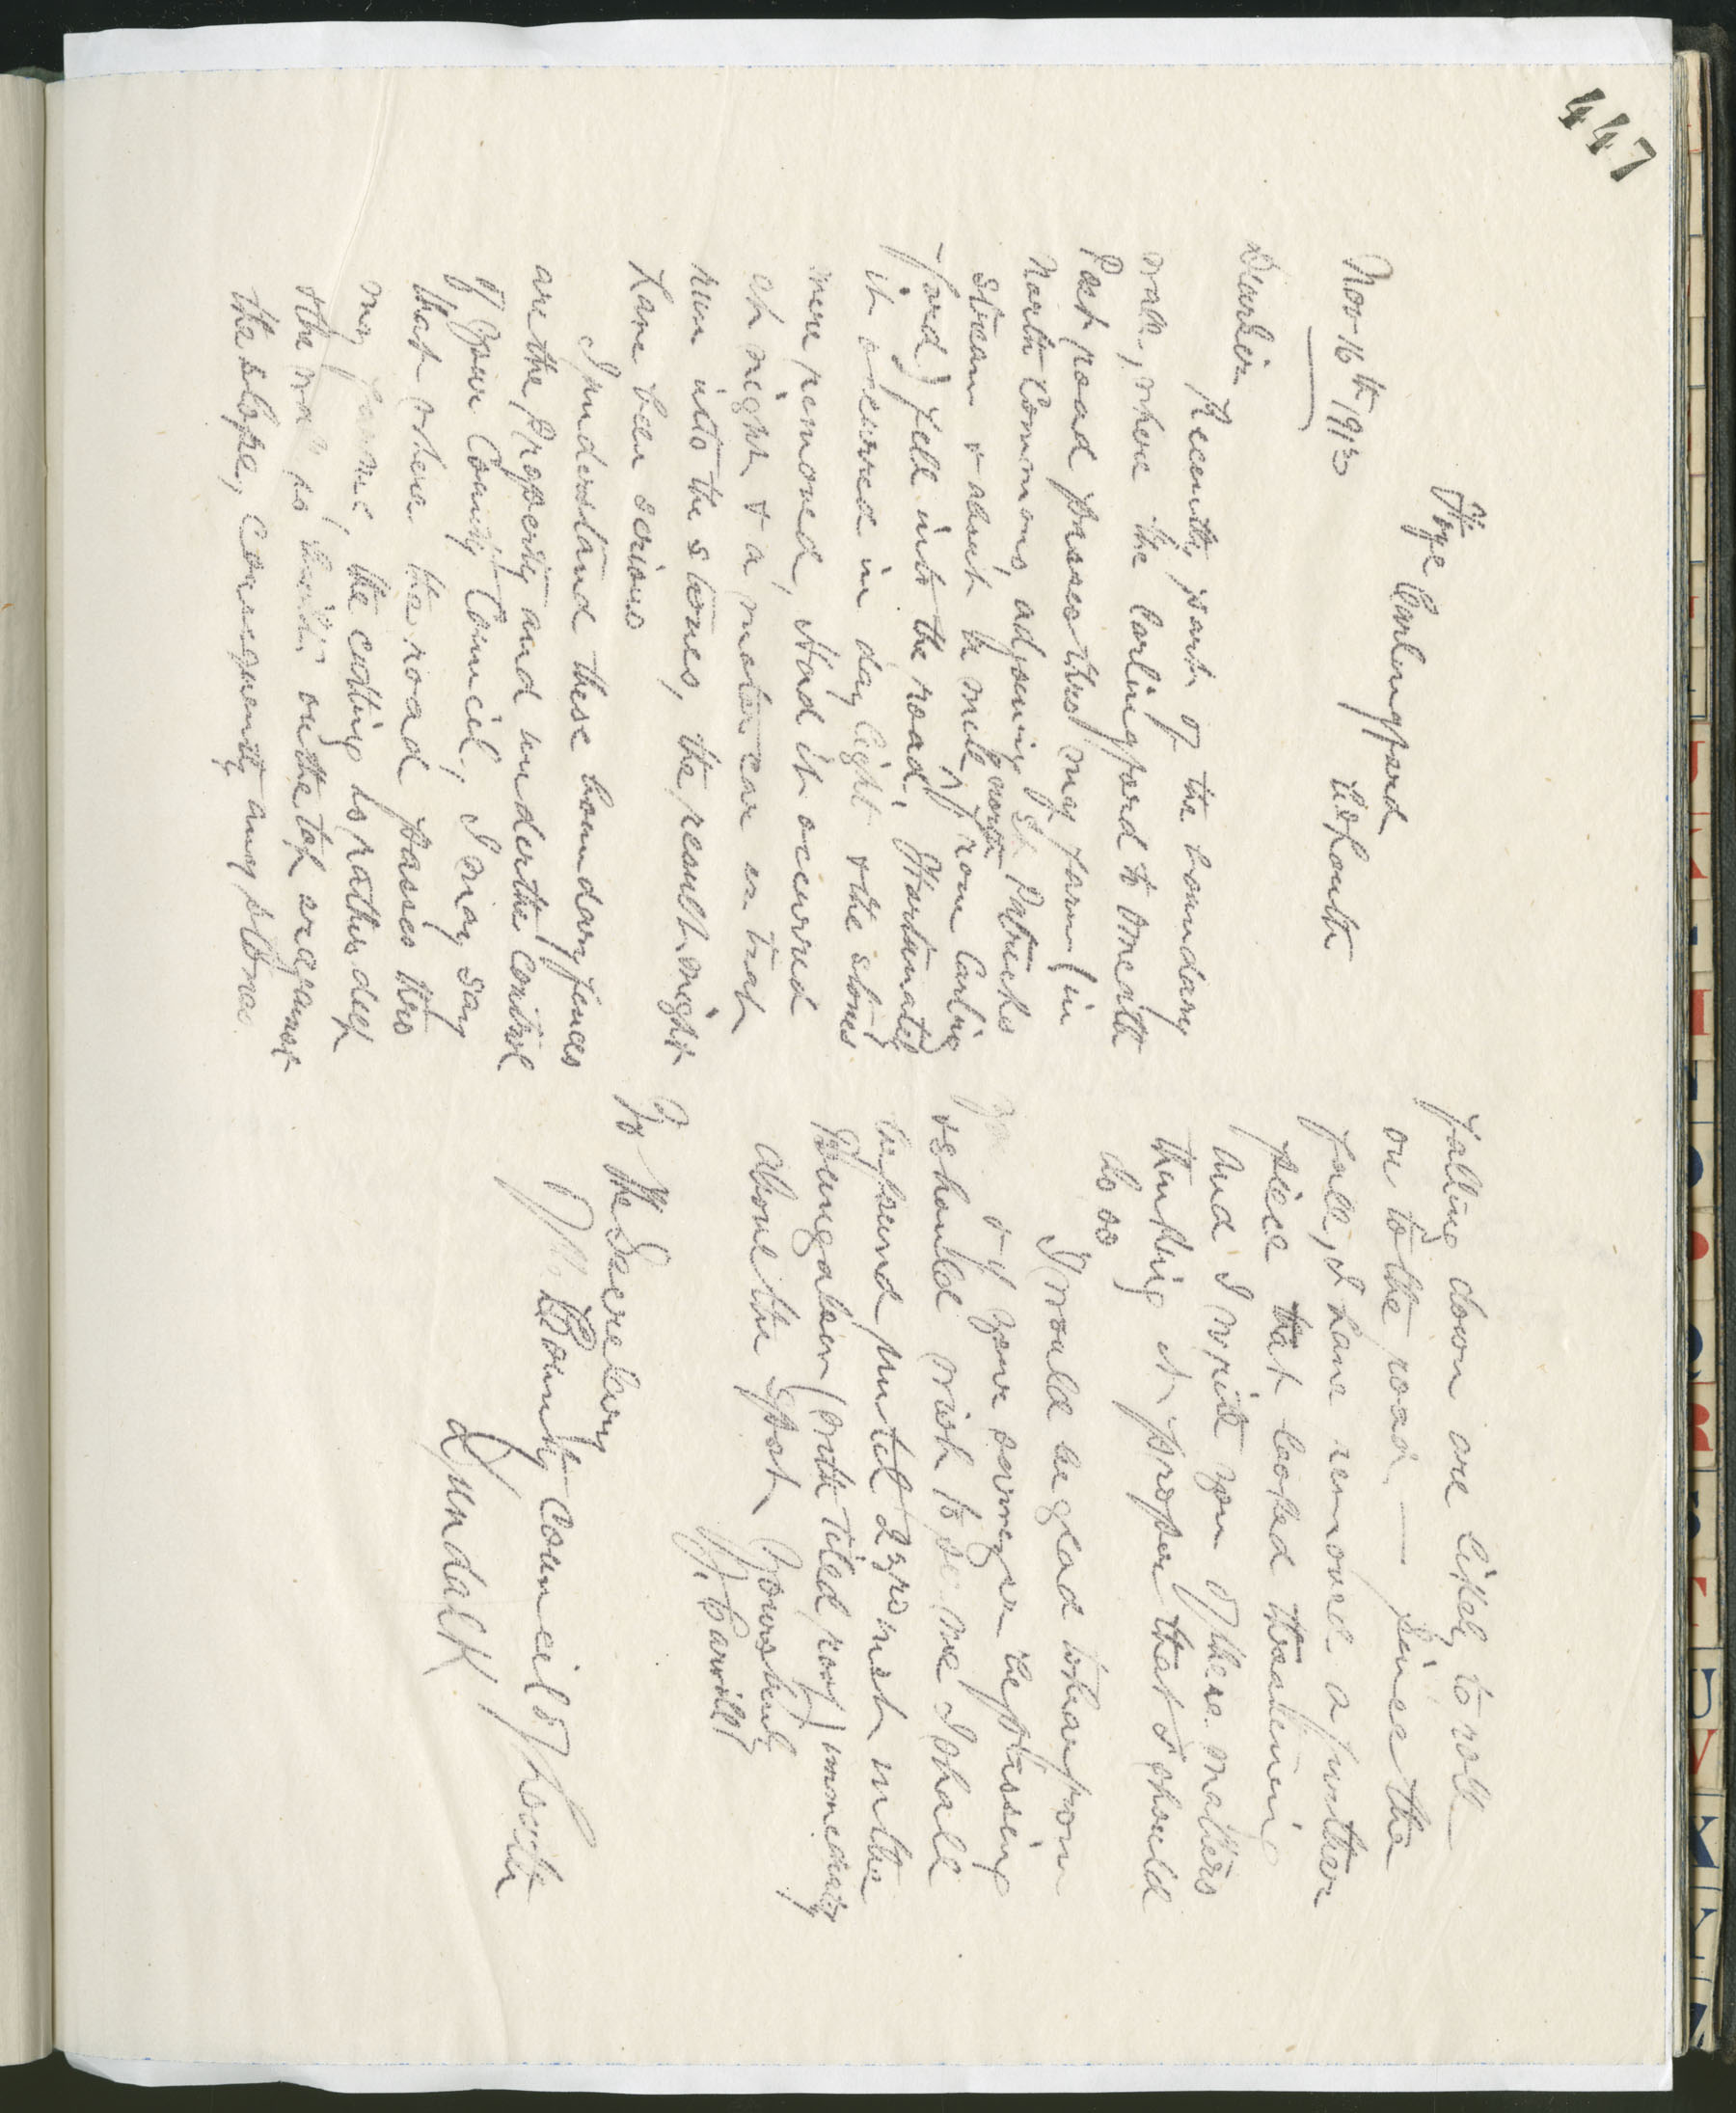 447
Nov 16th 1913
Carlingford
Co Louth
Dear Sir
Recently part of the boundary
wall, where the Carlingford to Omeath
Post road passes thro my farm (in
North Commons, adjoining St Patricks
stream & about ½ mile north from Carling
-ford) fell into the road. Fortunately
it occurred in day light & the stones
were removed, Had it occurred
at night & a motor car or trap
run into the stones, the result might
have been serious
I understand these boundary fences
are the property and under the control
of your County Council, I may say
that where the road passes thro
my farm, the cutting is rather deep
& the wall is built on the top or against
the slope, consequently any stone
falling down are likely to roll
on to the road — Since the
fall, I have removed a further
piece that looked threatening
And I write you of these matters
thinking it proper that I should
do so
I would be glad to hear from
you & if your surveyor be passing
& should wish to see me I shall
be found until 23rd inst in the
Bungalow (with tiled roof) immediately
above the spot Yours truly
To The Secretary
County Council of Louth
Dundalk